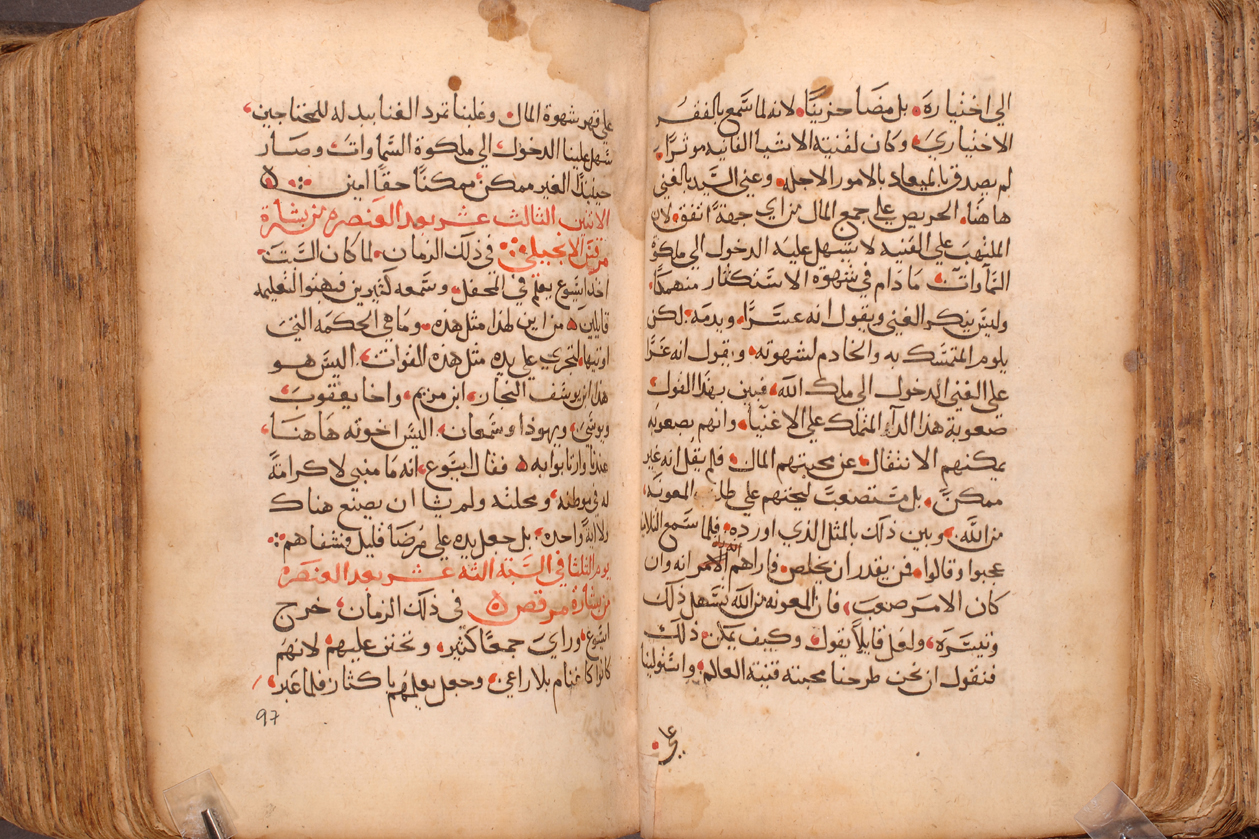 الى اختياره. بل مضا حزينًا. لانه لما سَمع بالفقر
الاختياري. وكان لقنية الاشيا الفانيه موثرًا.
لم يصدق بالميعاد بالامور الاجله. وعني السَيد بالغني
هاهنا. الحريص علي جمع المال من اي جهة اتفق. لان
الملتهب علي القنيه لا يسَهل عليه الدخول الي ملكوة
السَماوات. ما دام في شهوة الاستكثار منهمكًا.
وليسَ ينكر الغني ويقول انه عسَرًا. ويدمه. لكن
يلوم المتمسَك به والخادم لشهوته. وبقوله انه عسَرًا
علي الغني الدخول الي ملك الله. فبين بهذا القول
صعوبة هذا الدآء المتملك علي الاغنيآ. وانهم بصعوبه
يمكنهم الانتقال عن محبتهم المال. فلم يقل انه غير
ممكن. بل مسَتصعبَ ليحثهم علي طلب المعونة.
من الله. وبين ذلك بالمثل الذي اورده. فلما سَمع التلاميذ
عجبوا وقالوا. فمن يقدر ان يخلص. فاراهم انه وان
كان الامر صعبَ. فان المعونه من الله تسَهل ذلك
وتيسَره. ولعل قايلًا يقول. وكيف يمكن ذلك
فنقول ان نحن طرحنا محبة قنية العالم. واسَتولينا
علي
علي قهر شهوة المال. وغلبنا تمرد الغنا ببدله للمحتاجين.
سَهل علينا الدخول الي ملكوة السَماوات وصار
حينيذٍ الغير ممكن ممكنًا حقًا امين.
الاثنين الثالث عشر بعد العنصره من بشارة
مرقسَ الانجيلي. في ذلك الزمان. لما كان السَبت.
اخذ ايسَوع يعلم في المحفل. وسَمعه كثيرين فبهتوا لتعليمه
قايلين. من اين لهذا مثل هذه. وما هي الحكمه التي
اوتيها لتجري علي يده مثل هذه القوات. اليسَ هو
هذا ابن يوسَف النجار. ابن مريم. واخا يعقوب
ويوسَي. ويهوذا وسَمعان. اليسَ اخوته هاهنا.
عندنا وارتابوا به. فقال ايسَوع. انه ما من نبي لا كرامةً
له في وطنه. ومحلته ولم يشا ان يصنع هناك
ولا ايةً واحده. بل جعل يده علي مرضَا قليل فشفاهم.
يوم الثلثا في السَبَة الثالثه عشر بعد العنصره
من بشارة مرقص. في ذلك الزمان. خرج
ايسَوع. وراي جمعًا كثير. وتحنن عليهم. لانهم
كانوا كاغنام بلا راعي. وجعل يعلمهم باكثار فلما عبر.
97